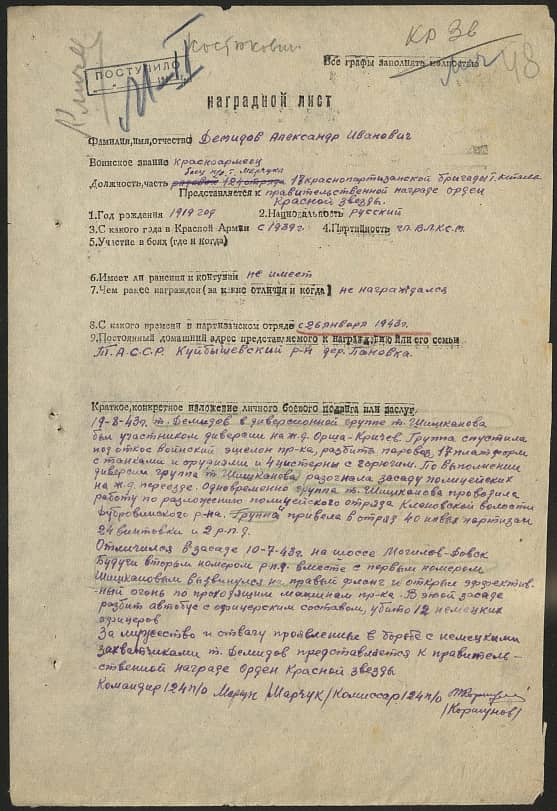 Костюкович
Кр Зв
48
Все графы заполнять полностью
ПОСТУПИЛО
НАГРАДНОЙ ЛИСТ
Фамилия,имя,отчество Демидов Александр Иванович
Воинское звание красноармеец
боец п/о т. Марчука
Должность,часть рядовой 124 отряда 17 краснопартизанской бригады т. Китаева
Представляется к правительственной награде орден
Красной звезды.
1.Год рождения 1919 год 2.Национальность русский
3.С какого года в Красной Армии с 1939г. 4.Партийность чл. ВЛКСМ.
5.Участие в боях (где и когда)
6.Имеет ли ранения и контузии не имеет
7.Чем ранее награжден (за какие отличия и когда) не награждался
8.С какого времени в партизанском отряде с 26 января 1943г.
9.Постоянный домашний адрес представляемого к награждению или его семьи
Т.А.С.С.Р. Куйбышевский р-н дер. Пановка.
Краткое,конкретное изложение личного боевого подвига или заслуг.
19-8-43г. т. Демидов в диверсионной группе т. Шишканова
был участником диверсии на ж.д. Орша-Кричев. Группа спустила
под откос воинский эшелон пр-ка, разбита паровоз, 17 платформ
с танками и орудиями и 4 цистерны с горючим. По выполнении
диверсии группа т. Шишканова разогнала засаду полицейских
на ж.д. переезде. Одновременно группа т. Шишканова проводила
работу по разложению полицейского отряда Кленовской волости
Дубровинского р-на. Группа привела в отряд 40 новых партизан
24 винтовки и 2 р-п.д.
Отличился в засаде 10-7-43г. на шоссе Могилов-Довск
Будучи вторым номером р.п.д. вместе с первым номером
Шишкановым выдвинулся на правый фланг и открыл эффектив-
ный огонь по проходящим машинам пр-ка. В этой засаде
разбит автобус с офицерским составом, убито 12 немецких
офицеров
За мужество и отвагу проявленные в борьбе с немецкими
захватчиками т. Демидов представляется к правитель-
ственной награде Орден Красной Звезды.
Командир 124 п/о Марчук /Марчук/ Комиссар 124 п/о
/Коршунов/